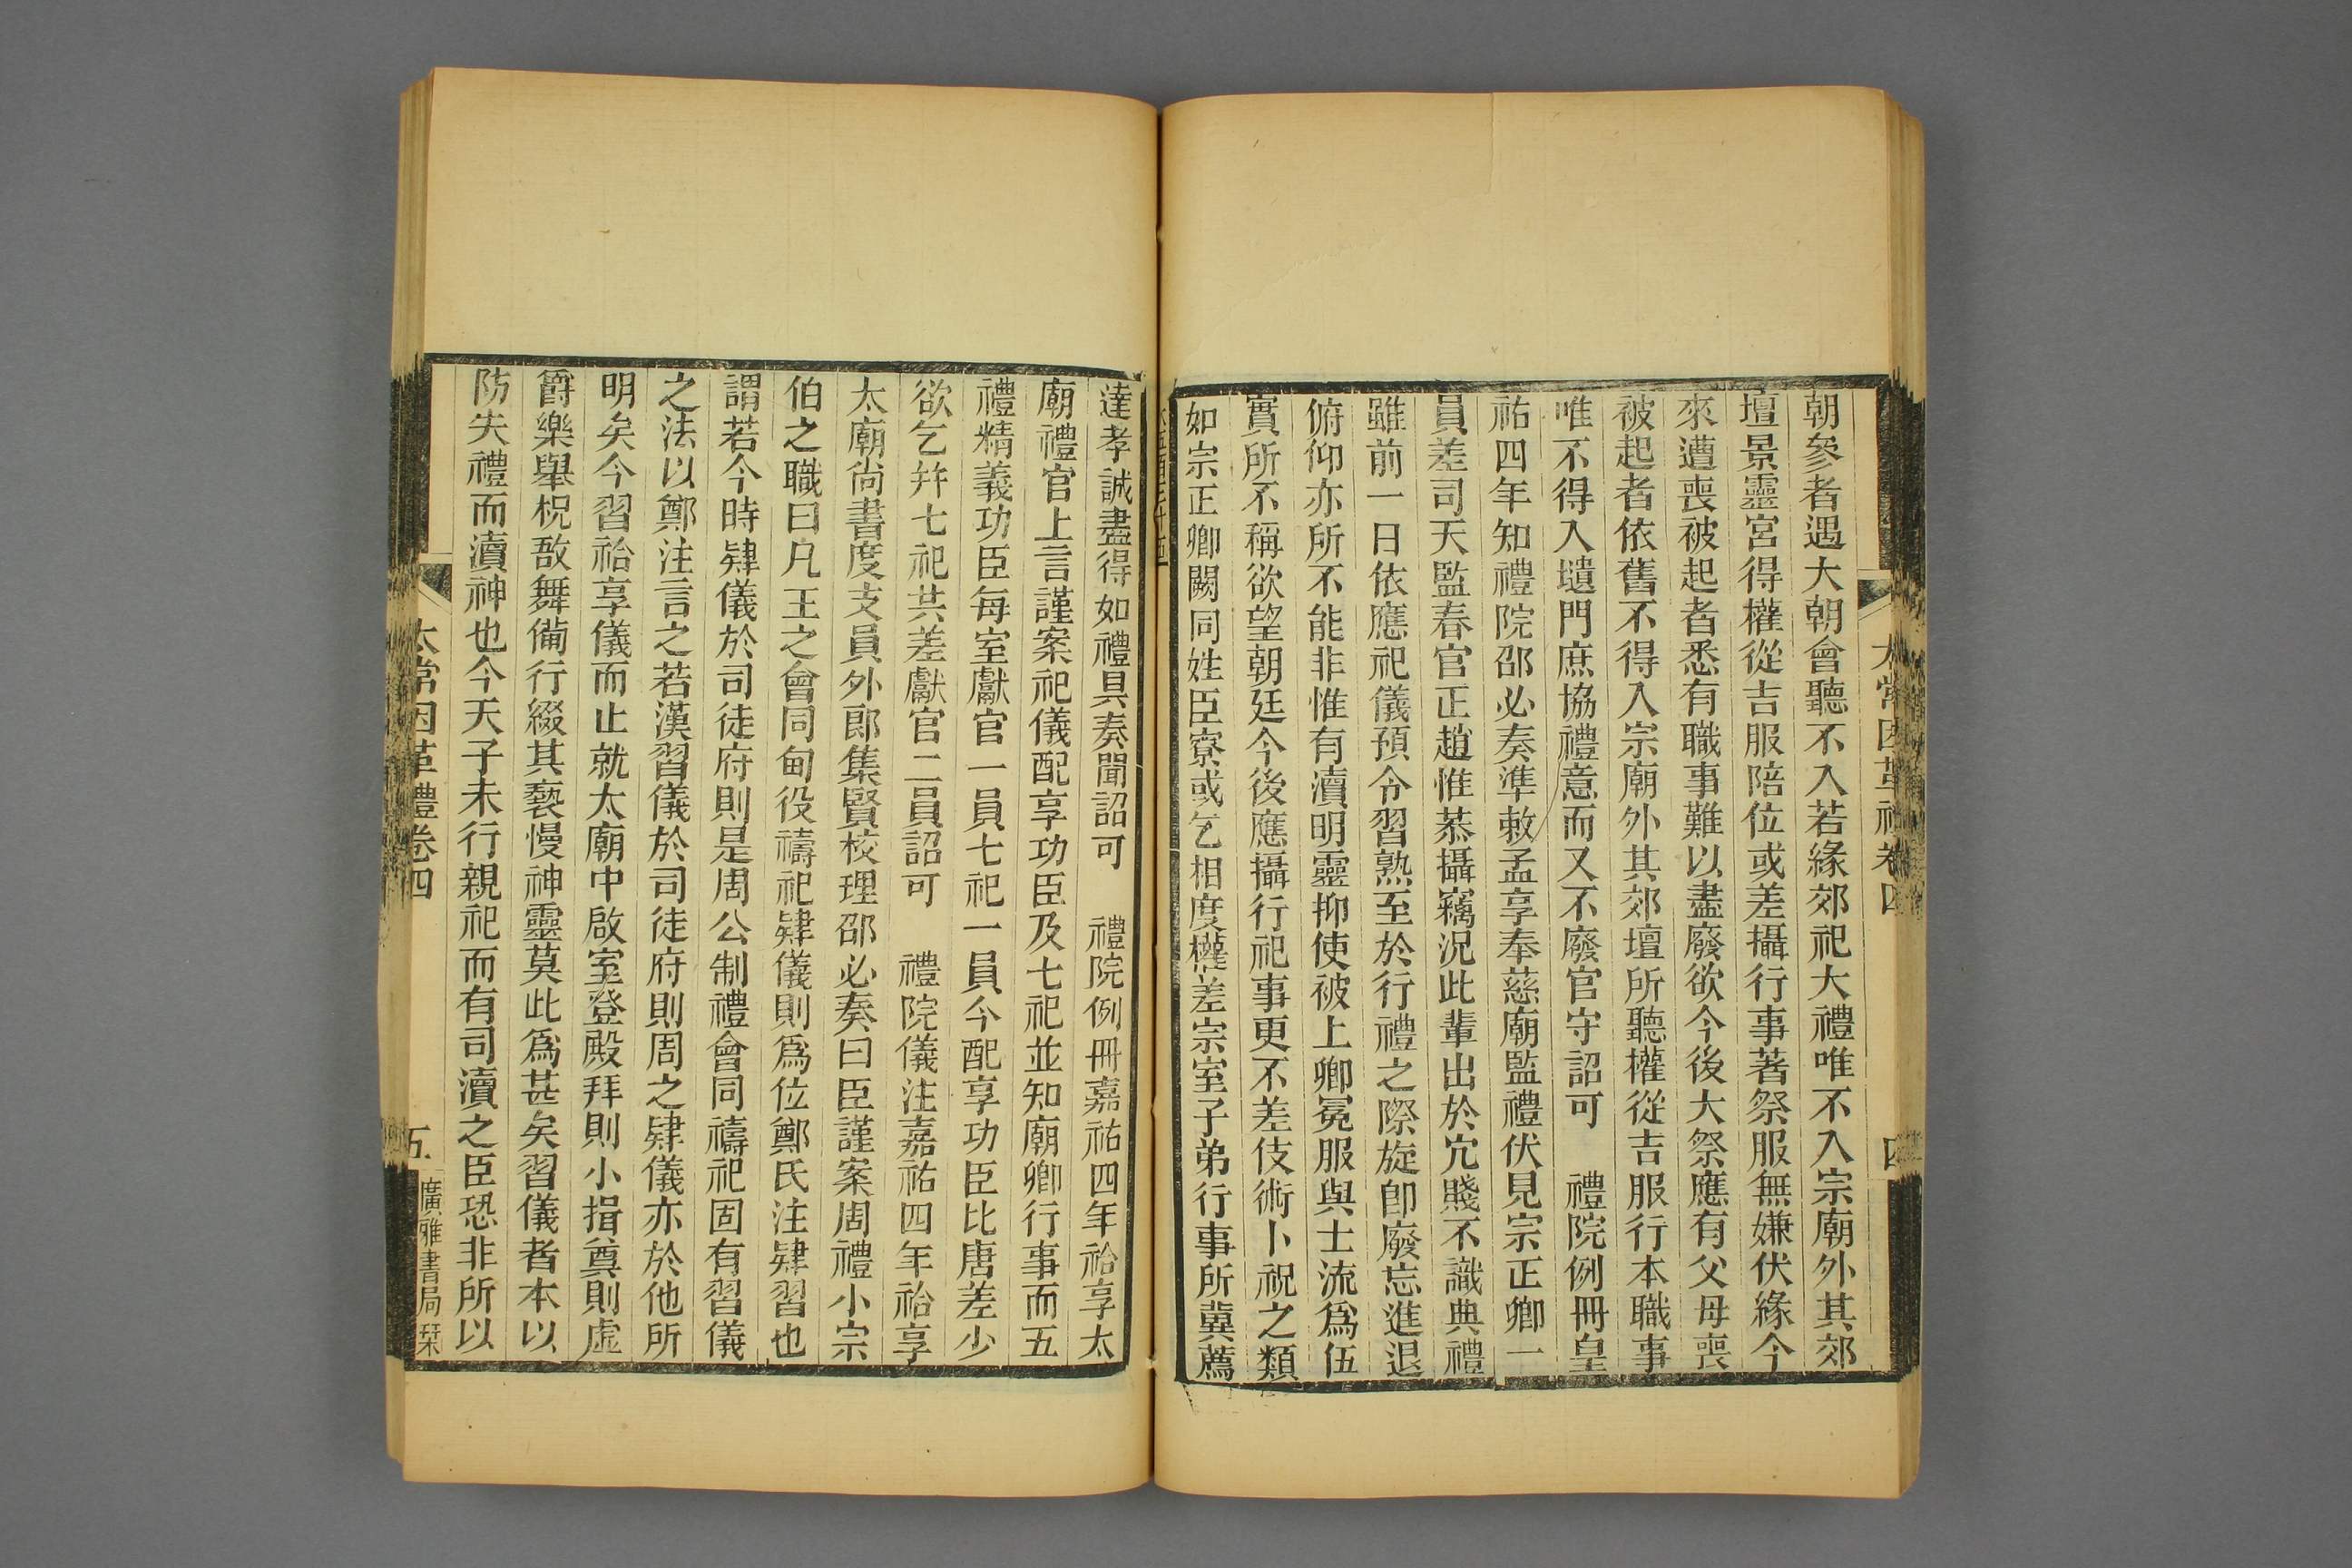 太常因革禮卷四
四
朝參者遇大朝會聽不入若緣郊祀大禮唯不入宗廟外其郊
壇景靈宮得權從吉服陪位或差攝行事著祭服無嫌伏緣今
來遭喪被起者悉有職事難以盡廢欲今後大祭應有父母喪
被起者依舊不得入宗廟外其郊壇所聽權從吉服行本職事
唯不得入壝門庶協禮意而又不廢官守詔可　禮院例冊皇
祐四年知禮院邵必奏準敕孟享奉慈廟監禮伏見宗正卿一
員差司天監春官正趙惟㳟攝竊況此輩出於宂賤不識典禮
雖前一日依應祀儀預令習熟至於行禮之際旋卽廢忘進退
俯仰亦所不能非惟有瀆明靈抑使被上卿冕服與士流爲伍
實所不稱欲望朝廷今後應攝行祀事更不差伎術卜祝之類
如宗正卿闕同姓臣寮或乞相度權差宗室子弟行事所冀薦
達孝誠盡得如禮具奏聞詔可　禮院例冊嘉祐四年祫享太
廟禮官上言謹案祀儀配享功臣及七祀並知廟卿行事而五
禮精義功臣每室獻官一員七祀一員今配享功臣比唐差少
欲乞幷七祀共差獻官二員詔可　禮院儀注嘉祐四年祫享
太廟尙書度支員外郎集賢校理邵必奏曰臣謹案周禮小宗
伯之職曰凡王之會同甸役禱祀肄儀則爲位鄭氏注肄習也
謂若今時肄儀於司徒府則是周公制禮會同禱祀固有習儀
之法以鄭注言之若漢習儀於司徒府則周之肄儀亦於他所
明矣今習祫享儀而止就太廟中啟室登殿拜則小揖奠則虛
爵樂舉柷敔舞備行綴其褻慢神靈莫此爲甚矣習儀者本以
防失禮而瀆神也今天子未行親祀而有司瀆之臣恐非所以
太常因革禮卷四
五
廣雅書局栞